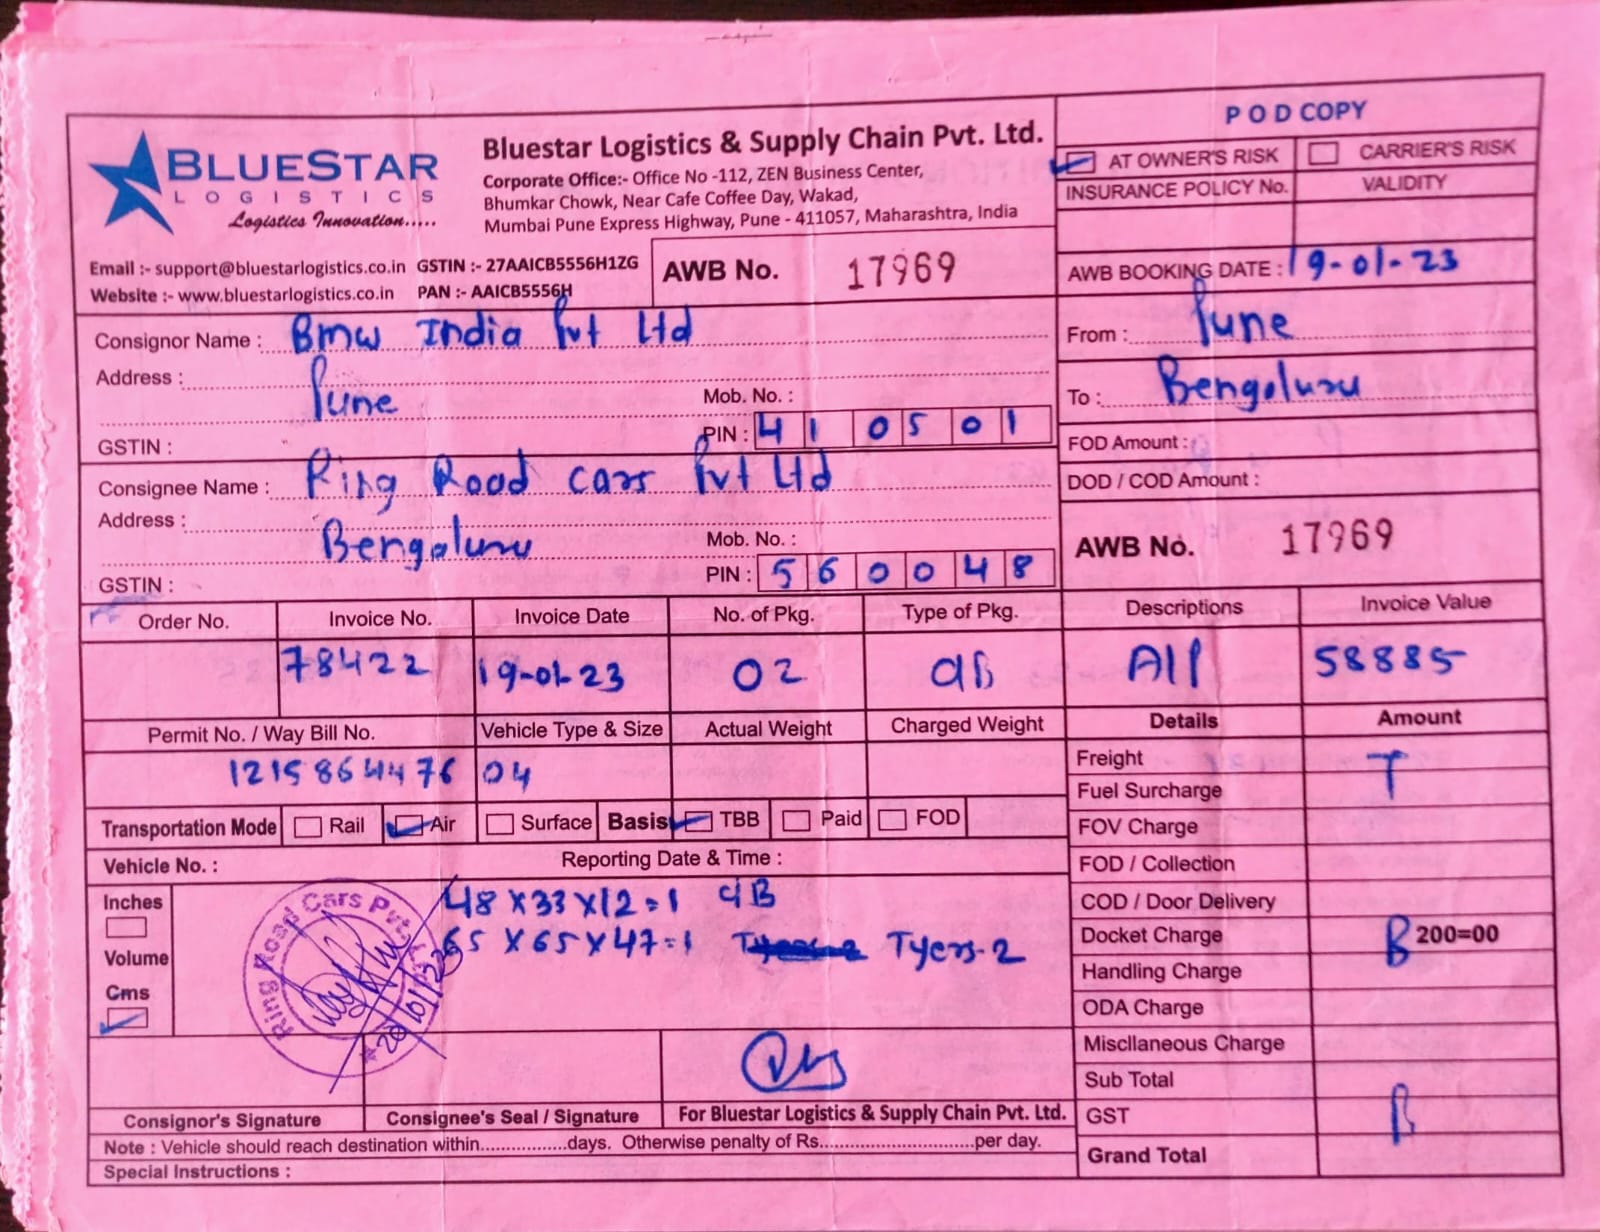 POD COPY
BLUESTAR
LOGISTICS
Logistics Innovation.....
Bluestar Logistics & Supply Chain Pvt. Ltd.
Corporate Office:- Office No -112, ZEN Business Center,
Bhumkar Chowk, Near Cafe Coffee Day, Wakad,
Mumbai Pune Express Highway, Pune - 411057, Maharashtra, India
AT OWNER'S RISK CARRIER'S RISK
INSURANCE POLICY No. VALIDITY
Email :- support@bluestarlogistics.co.in GSTIN :- 27AAICB5556H1ZG
Website :- www.bluestarlogistics.co.in PAN :- AAICB5556H
AWB No. 17969
AWB BOOKING DATE : 19-01-23
Consignor Name : Bmw India Pvt Ltd
Address : Pune
Mob. No. :
GSTIN : PIN : 410501
From : Pune
To : Bengaluru
FOD Amount :
DOD / COD Amount :
Consignee Name : Ring Road cars Pvt Ltd
Address : Bengaluru
Mob. No. :
GSTIN : PIN : 560048
AWB No. 17969
Order No. Invoice No. Invoice Date No. of Pkg. Type of Pkg. Descriptions Invoice Value
78422 19-01-23 02 CB AIP 58885
Permit No. / Way Bill No. Vehicle Type & Size Actual Weight Charged Weight Details Amount
1215864476 04
Transportation Mode Rail Air Surface Basis TBB Paid FOD
Vehicle No. : Reporting Date & Time :
Inches
Volume
Cms
48 x 33 x 12 = 1 CB
65 x 65 x 47 = 1 Tyers-2
Ring Road Cars Pvt.
Freight T
Fuel Surcharge
FOV Charge
FOD / Collection
COD / Door Delivery
Docket Charge B 200=00
Handling Charge
ODA Charge
Miscllaneous Charge
Sub Total
GST B
Grand Total
Consignor's Signature Consignee's Seal / Signature For Bluestar Logistics & Supply Chain Pvt. Ltd.
Note : Vehicle should reach destination within.................days. Otherwise penalty of Rs............................per day.
Special Instructions :